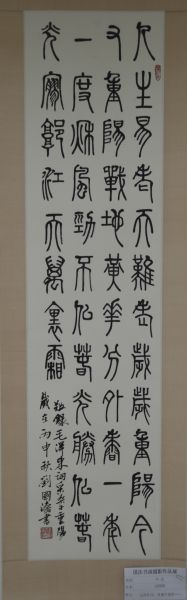 人生易老天難老歲歲重陽今
又重陽戰地黃花分外香一年
一度秋風勁不似春光勝似春
光寥廓江天萬里霜
錄毛澤東詞采桑子重陽
歲在丙申秋劉國書